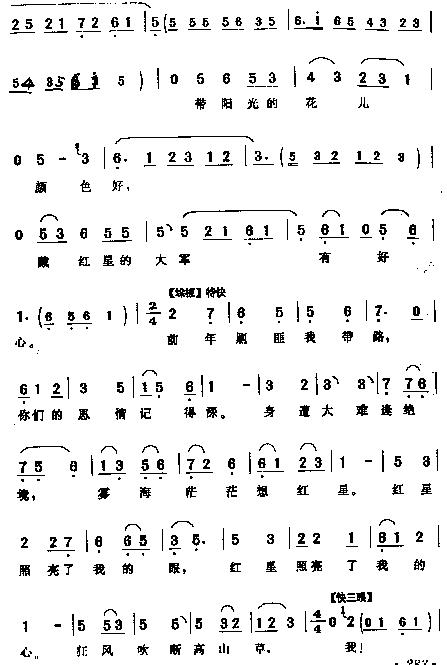 25 21 7 2 6 1 | 5 ( 5 6 5 3 5 3 5 | 6. i 6 5 4 3 2 3 |
5 4 3 5 6 6 i 5 ) | 0 5 6 5 3 | 4 3 2 3 1 |
带阳光的花儿
0 5 - 3 | 6. 1 2 3 1 2 | 3. ( 5 3 2 1 2 3 ) |
颜色好,
0 5 3 6 5 5 | 5 5 2 1 6 1 | 5 6 1 0 5 6 |
戴红星的大军有好
【垛板】特快
1. ( 6 5 6 1 ) | 2/4 2 7 | 6 5 | 5 6 | 7. 0 |
心。前年匪我带路,
6 1 2 | 3 5 | 1 5 6 | 1 - | 3 2 | 3 3 | 7 7 6 |
你们的恩情记得深。身遭大难逢绝
7 5 6 | 1 3 5 6 | 2 7 6 2 | 6 1 2 3 | 1 - | 5 3 |
境,雾海茫茫想红星。红星
2 2 7 | 6 6 5 | 3 5. | 5 3 | 2 2 7 | 1 2 | 6 1 2 |
照亮了我的眼,红星照亮了我的
【快三眼】
1 - | 5 5 3 | 5 5 | 2 3 1 | 2 - | 4/4 0 2 - - |
心。狂风吹断高山草,我!